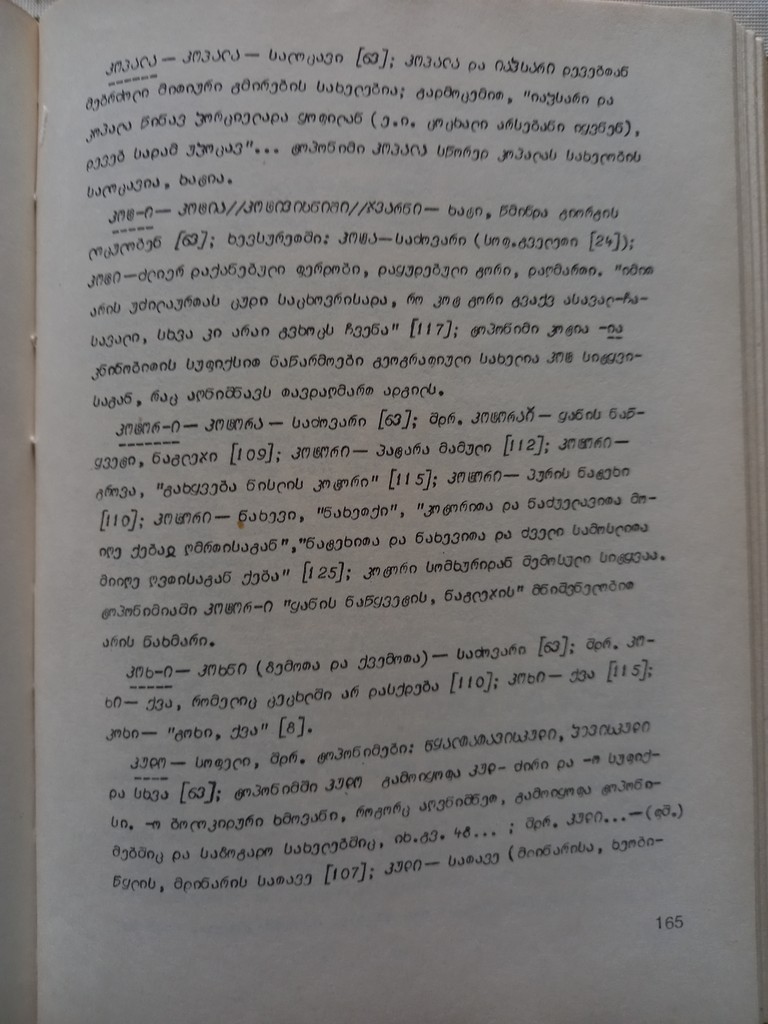 კოპალა — კოპალა — სალოცავი [63]; კოპალა და იახსარი დევებთან
მებრძოლი მითიური გმირების სახელებია; გადმოცემით, "იახსარი და
კოპალა წინავ ჴორციელადა ყოფილან (ე.ი. ცოცხალი არსებანი იყვნენ),
დევებ სადამ უჴოცავ"... ტოპონიმი კოპალა სწორედ კოპალას სახელობის
სალოცავია, ხატია.
კოტ-ი — კოტია//კოტივიხნიში//ჯვარნი — ხატი, წმინდა გიორგის
ლოცულობენ [63]; ხევსურეთში: კოტა—საძოვარი (სოფ.გველეთი [24]);
კოტი—ძლიერ დაქანებული ფერდობი, დაყუდებული გორი, დაღმართი. "იმით
არის უძილაურთას ცუდი საცხოვრისადა, რო კოტ გორი გვაქვ ასავალ-ჩა-
სავალი, სხვა კი არაი გვხოცს ჩვენა" [117]; ტოპონიმი კოტია -ია
კნინობითის სუფიქსით ნაწარმოები გეოგრაფიული სახელია კოტ სიტყვი-
საგან, რაც აღნიშნავს თავდაღმართ ადგილს.
კოტორ-ი — კოტორა — საძოვარი [63]; შდრ. კოტორაჲ — ყანის ნაწ-
ყვეტი, ნაგლეჯი [109]; კოტორი — პატარა მამული [112]; კოტორი —
გროვა, "გახყვება ნისლის კოტორი" [115]; კოტორი — პურის ნატეხი
[110]; კოტორი — ნახევი, "ნახეთქი", "კოტორითა და ნაძველავითა მო-
იღე ქებაჲ ღმრთისაგან","ნატეხითა და ნახევითა და ძველი სამოსლითა
მიიღე ღვთისაგან ქება" [125]; კოტორი სომხურიდან შემოსული სიტყვაა.
ტოპონიმიაში კოტორ-ი "ყანის ნაწყვეტის, ნაგლეჯის" მნიშვნელობით
არის ნახმარი.
კოხ-ი — კოხნი (ზემოთა და ქვემოთა) — საძოვარი [63]; შდრ. კო-
ხი — ქვა, რომელიც ცეცხლში არ დასქდება [110]; კოხი — ქვა [115];
კოხი — "გოხი, ქვა" [8].
კუდო — სოფელი, შდრ. ტოპონიმები: წყალთათავისკუდი, ჴევისკუდი
და სხვა [63]; ტოპონიმში კუდო გამოიყოფა კუდ- ძირი და -ო სუფიქ-
სი. -ო ბოლოკიდური ხმოვანი, როგორც აღვნიშნეთ, გამოიყოფა ტოპონი-
მებშიც და საზოგადო სახელებშიც, იხ.გვ. 48... ; შდრ. კუდი...—(ფშ.)
წყლის, მდინარის სათავე [107]; კუდი — სათავე (მდინარისა, ხეობი-
165